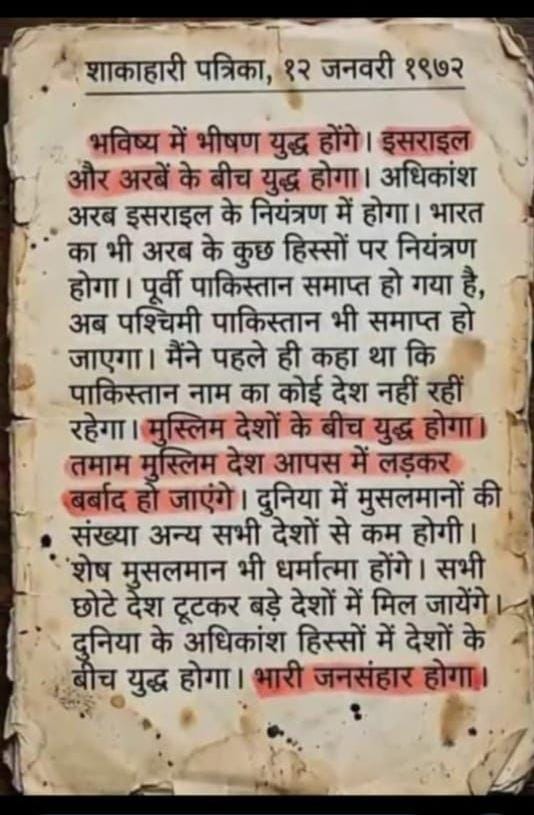 शाकाहारी पत्रिका, १२ जनवरी १९७२
भविष्य में भीषण युद्ध होंगे। इसराइल
और अरबें के बीच युद्ध होगा। अधिकांश
अरब इसराइल के नियंत्रण में होगा। भारत
का भी अरब के कुछ हिस्सों पर नियंत्रण
होगा। पूर्वी पाकिस्तान समाप्त हो गया है,
अब पश्चिमी पाकिस्तान भी समाप्त हो
जाएगा। मैंने पहले ही कहा था कि
पाकिस्तान नाम का कोई देश नहीं रहीं
रहेगा। मुस्लिम देशों के बीच युद्ध होगा।
तमाम मुस्लिम देश आपस में लड़कर
बर्बाद हो जाएंगे। दुनिया में मुसलमानों की
संख्या अन्य सभी देशों से कम होगी।
शेष मुसलमान भी धर्मात्मा होंगे। सभी
छोटे देश टूटकर बड़े देशों में मिल जायेंगे।
दुनिया के अधिकांश हिस्सों में देशों के
बीच युद्ध होगा। भारी जनसंहार होगा।